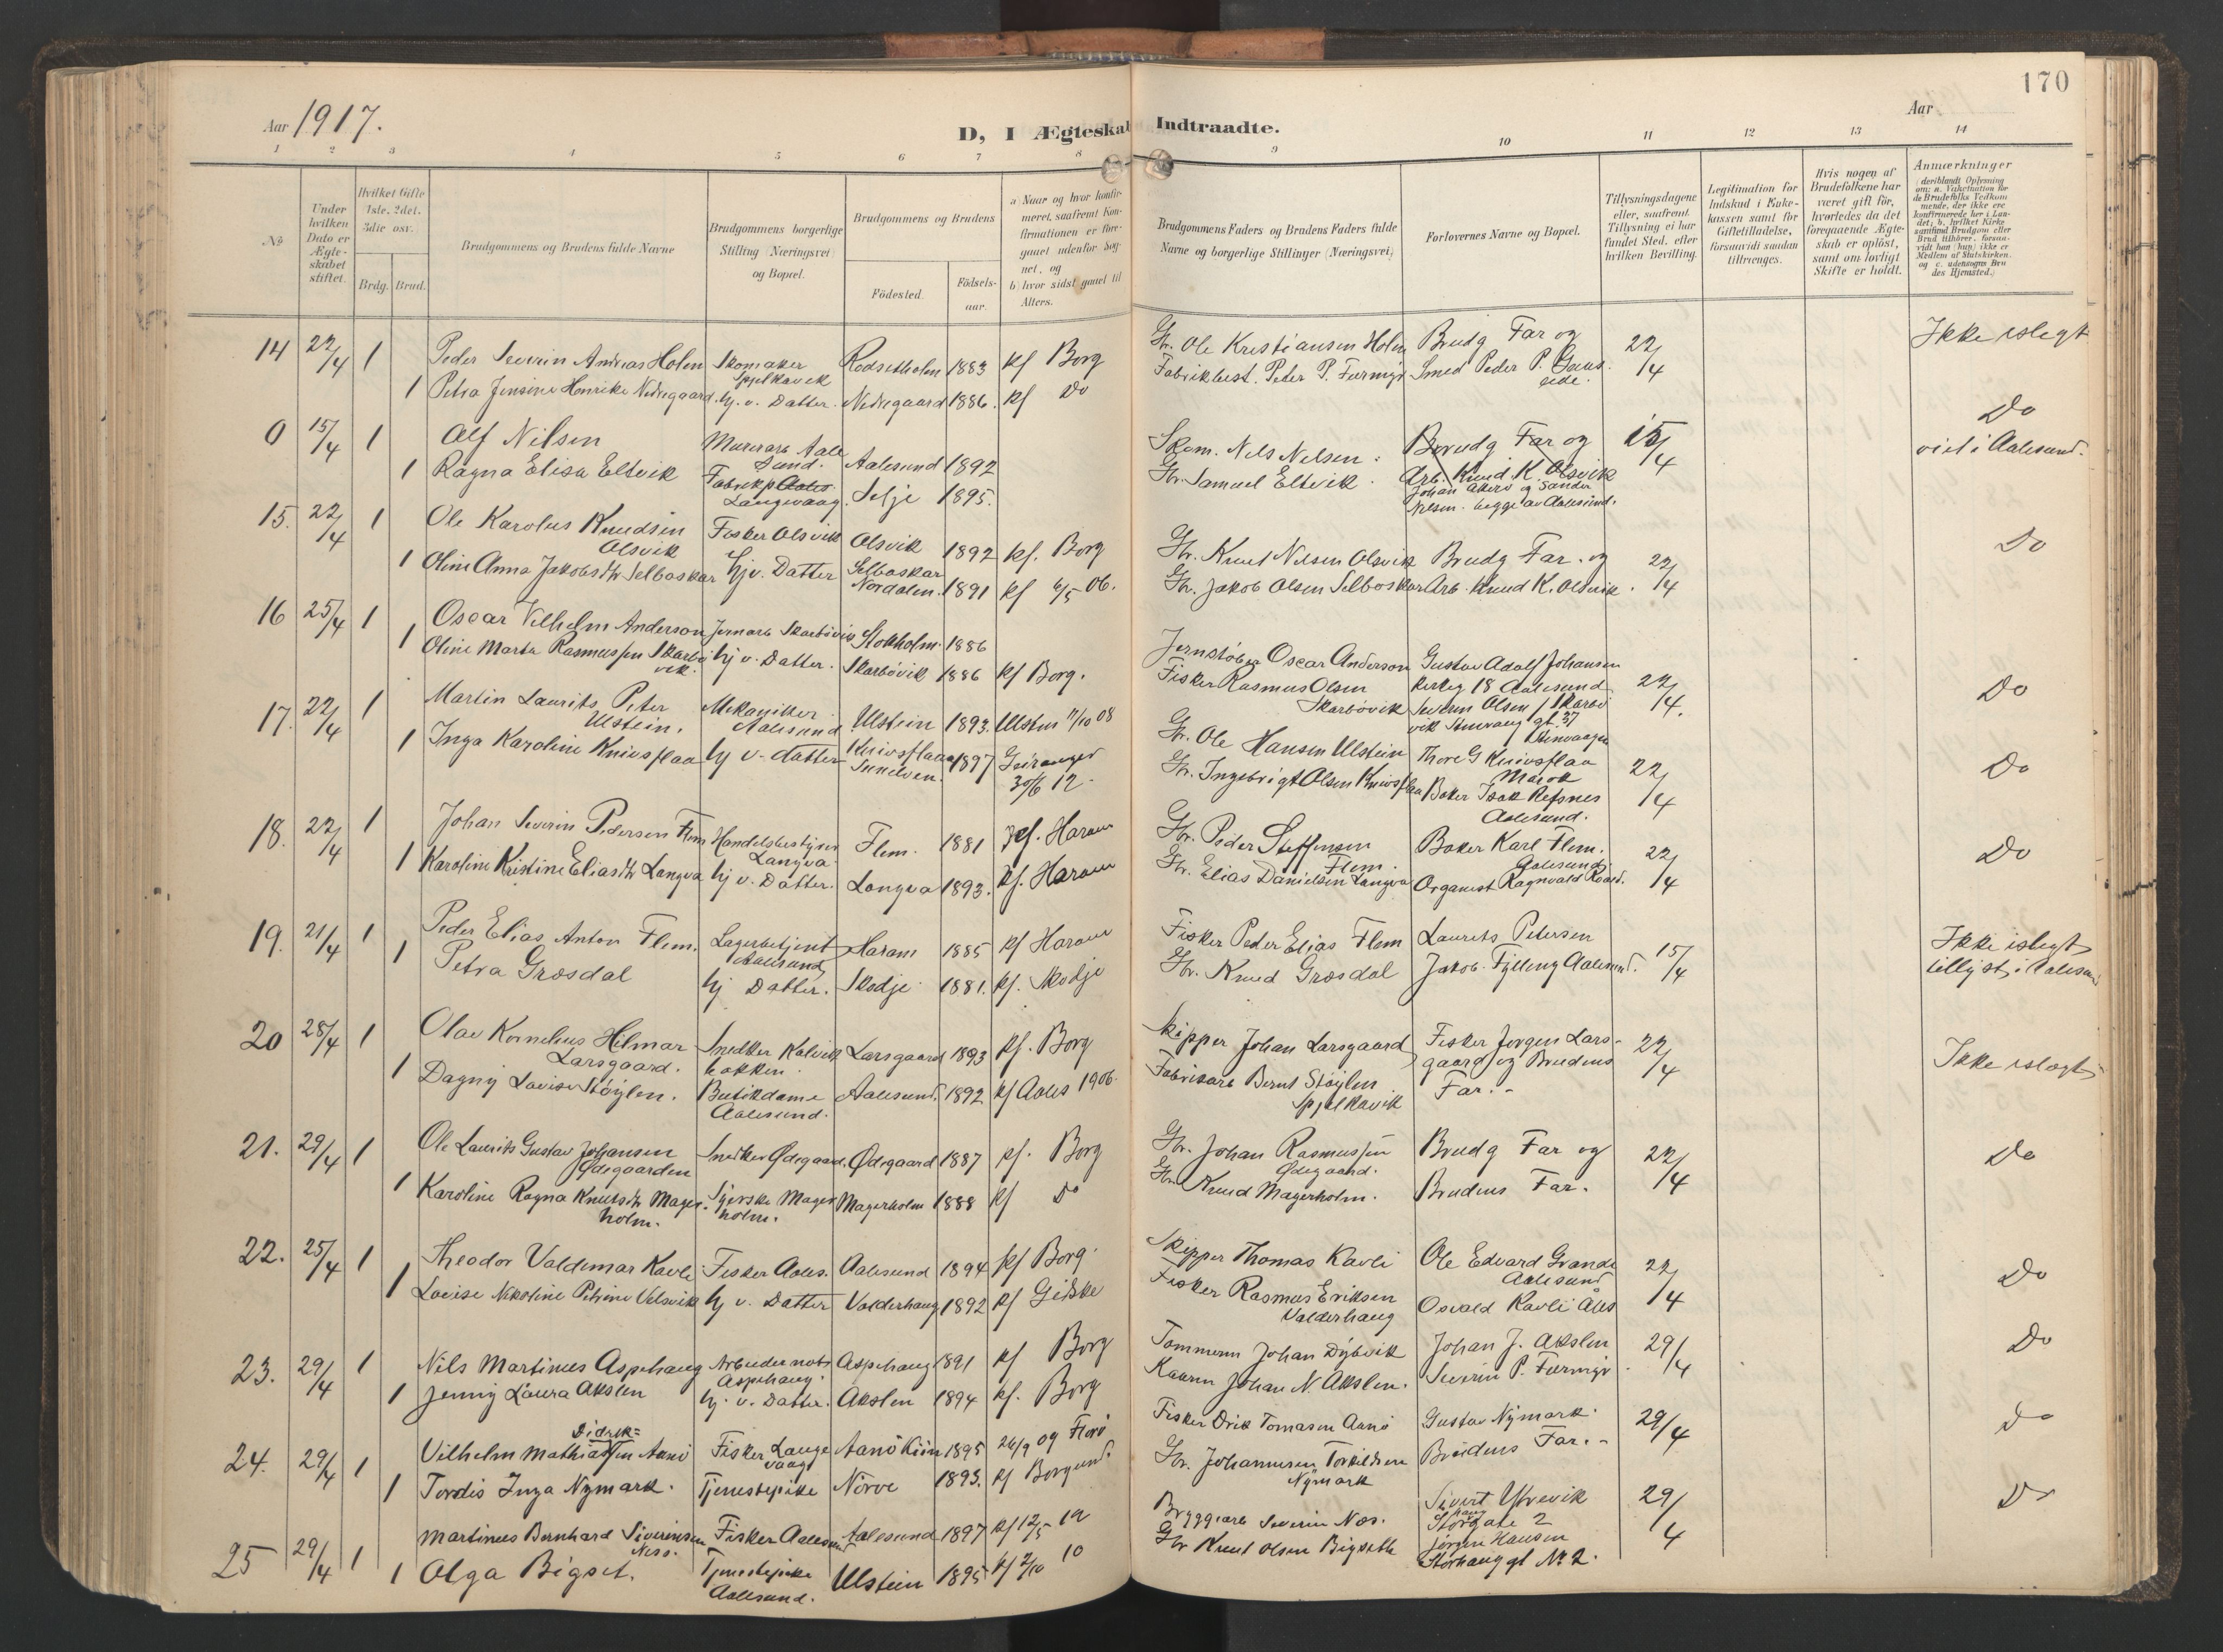 170
Aar 1917.
D, I Ægteskab Indtraadte.
Aar
1 2 3 4 5 6 7 8 9 10 11 12 13 14
No
Under hvilken Dato er Ægteskabet stiftet.
Hvilket Gifte 1ste, 2det, 3die osv.
Brdg. Brud.
Brudgommens og Brudens fulde Navne
Brudgommens borgerlige Stilling (Næringsvei) og Bopæl.
Brudgommens og Brudens
Födested.
Födsels-aar.
a) Naar og hvor konfirmeret, saafremt Konfirmationen er foregaaet udenfor Sognet, og
b) hvor sidst gaaet til Alters.
Brudgommens Faders og Brudens Faders fulde Navne og borgerlige Stillinger (Næringsvei)
Forlovernes Navne og Bopæl.
Tillysningsdagene eller, saafremt Tillysning ei har fundet Sted, efter hvilken Bevilling.
Legitimation for Indskud i Enkekassen samt for Giftetilladelse, forsaavidt saadan tiltrænges.
Hvis nogen af Brudefolkene har været gift før, hvorledes da det foregaaende Ægteskab er opløst, samt om lovligt Skifte er holdt.
Anmærkninger
14 22/4 1 Peder Severin Andreas Holm Skomaker Spjelkavik Rødsetholm 1883 kf Borg Gbr. Ole Kristiansen Holm Brudg Far og 22/4 Ikke islegt
1 Petra Jensine Henrike Nedregaard. hj. v. Datter. Nedregaard 1886. kf Do Fabrikbest. Peter P. Furmyr Smed Peder P.
0 15/4 1 Alf Nilsen Murerarb Aalesund. Aalesund 1892 Skom. Nels Nelsen. Brudg Far og 15/4 Do viet i Aalesund.
1 Ragna Elisa Eltvik Langevaag. Selje 1895. Gbr. Samuel Eltvik. Arb. Knud K. Olsvik
Nilsen. begge av Aalesund.
15. 22/4 1 Ole Karolus Knudsen Olsvik Fisker Olsvik Olsvik 1892 kf. Borg Gbr. Knut Nilsen Olsvik Brudg Far. og 22/4 Do
1 Oline Anna Jakobsdtr Selboskar hjv. Datter Selboskar Nordalen. 1891 kf 6/5 06. Gbr. Jakob Olsen Selboskar Arb. Knud K. Olsvik.
16 25/4 1 Oscar Vilhelm Anderson Jernarb Skarbövik Stokholm. 1886 Jernstöber Oscar Anderson Gustav Adolf Johansen Kirkeg 18 Aalesund 22/4. Do
1 Oline Marta Rasmussen Skarbövik. hj v. Datter. Skarbövik 1886 kf Borg. Fisker Rasmus Olsen Skarbövik Severin Olsen Skarbövik
17. 22/4 1 Martin Laurits Peter Ulstein. Mekaniker Aalesund. Ulstein 1893. Ulsten 11/10 08 Gr. Ole Hansen Ulstein Thore G Knivsflaa Marok 22/4 Do
1 Inga Karoline Knivsflaa hj v. datter Knivsflaaa Sunelven. 1897 Geiranger 30/6 12. Gr. Ingebrigt Olsen Knivsflaa Baker Isak Refsnes Aalesund.
18. 22/4 1 Johan Severin Pedersen Flem Handelsbestyrer Langva Flem. 1881 kf. Haram Gbr. Peder Steffensen Flem. Baker Karl Flem. Aalesund. 22/4 Do
1 Karoline Kristine Eliasdtr Langva hj v. Datter. Langva 1893. kf. Haram Gbr. Elias Danielsen Langva Organist Ragnvald Roald.
19. 21/4 1 Peder Elias Anton Flem. Lagerbetjent Aalesund Haram 1885 kf Haram Fisker Peder Elias Flem Laurits Petersen 15/4 Ikke islegt
1 Petra Grøsdal hj Datter. Skodje 1881. kf. Skodje Gbr. Knud Grøsdal Jakob. Fylling Aalesund. tillyst i Aalesund
20 28/4 1 Olav Kornelius Hilmar Larsgaard. Snedker Kalvikbakken. Larsgaard 1893 kf. Borg Skipper Johan Larsgaard Fisker Jørgen Larsgaard og Brudens Far. 22/4 Ikke islegt
1 Dagny Lovise Støylen. Butikdame Aalesund. Aalesund. 1892 kf Aales 1906. Fabrikarb Bernt Støylen Spjelkavik
21. 29/4 1 Ole Laurits Gustav Johansen Ødegaarden Snedker Ødegaard. Ødegaard 1887 kf. Borg Gbr. Johan Rasmussen Ødegaard. Brudg Far og 22/4 Do
1 Karoline Ragna Knutsdtr Magerholm. Syerske Magerholm. Magerholm 1888 kf Do Gbr Knud Magerholm. Brudens Far.
22. 25/4 1 Theodor Valdemar Kavli Fisker Aales. Aalesund 1894 kf Borg. Skipper Thomas Kavli Ole Edvard Grande Aalesund 22/4 Do
1 Lovise Nikoline Petrine Velsvik hj v. Datter Valderhaug 1892 kf Giske Fisker Rasmus Eriksen Valderhaug Osvald Kavli Ales
23. 29/4 1 Nils Martinus Aspehaug Aspehaug. Aspehaug 1891 kf Borg Tømmerm Johan Dybvik Johan J. Akslen 29/4 Do
1 Jenny Laura Akslen hj. v. Datter. Akslen 1894 kf. Borg Johan N. Akslen. Severin P. Furmyr.
24. 29/4 1 Vilhelm Mathias Didrik=sen Aanö Fisker Langevaag Aanö Kinn 1895 26/9 09 Florö Fisker Drik Tomasen Aanö Gustav Nymark. 29/4 Do
1 Tordis Inga Nymark. Tjenestepike Nörve 1893. kf Borgund. Gbr. Johannesen Torkildsen Nymark Brudens Far.
25 29/4 1 Martinus Bernhard Siverinsen Ness. Fisker Aalesund Aalesund 1897 kf 12/5 12 Bryggearb Severin Nes. Sivert Ytrevik Storgate 2 29/4 Do
1 Olga Bigset. Tjenestepike Aalesund. Ulstein 1895 kf 2/10 10 Gbr Knut Olsen Bigseth Jørgen Hansen Storhauggt No 2.